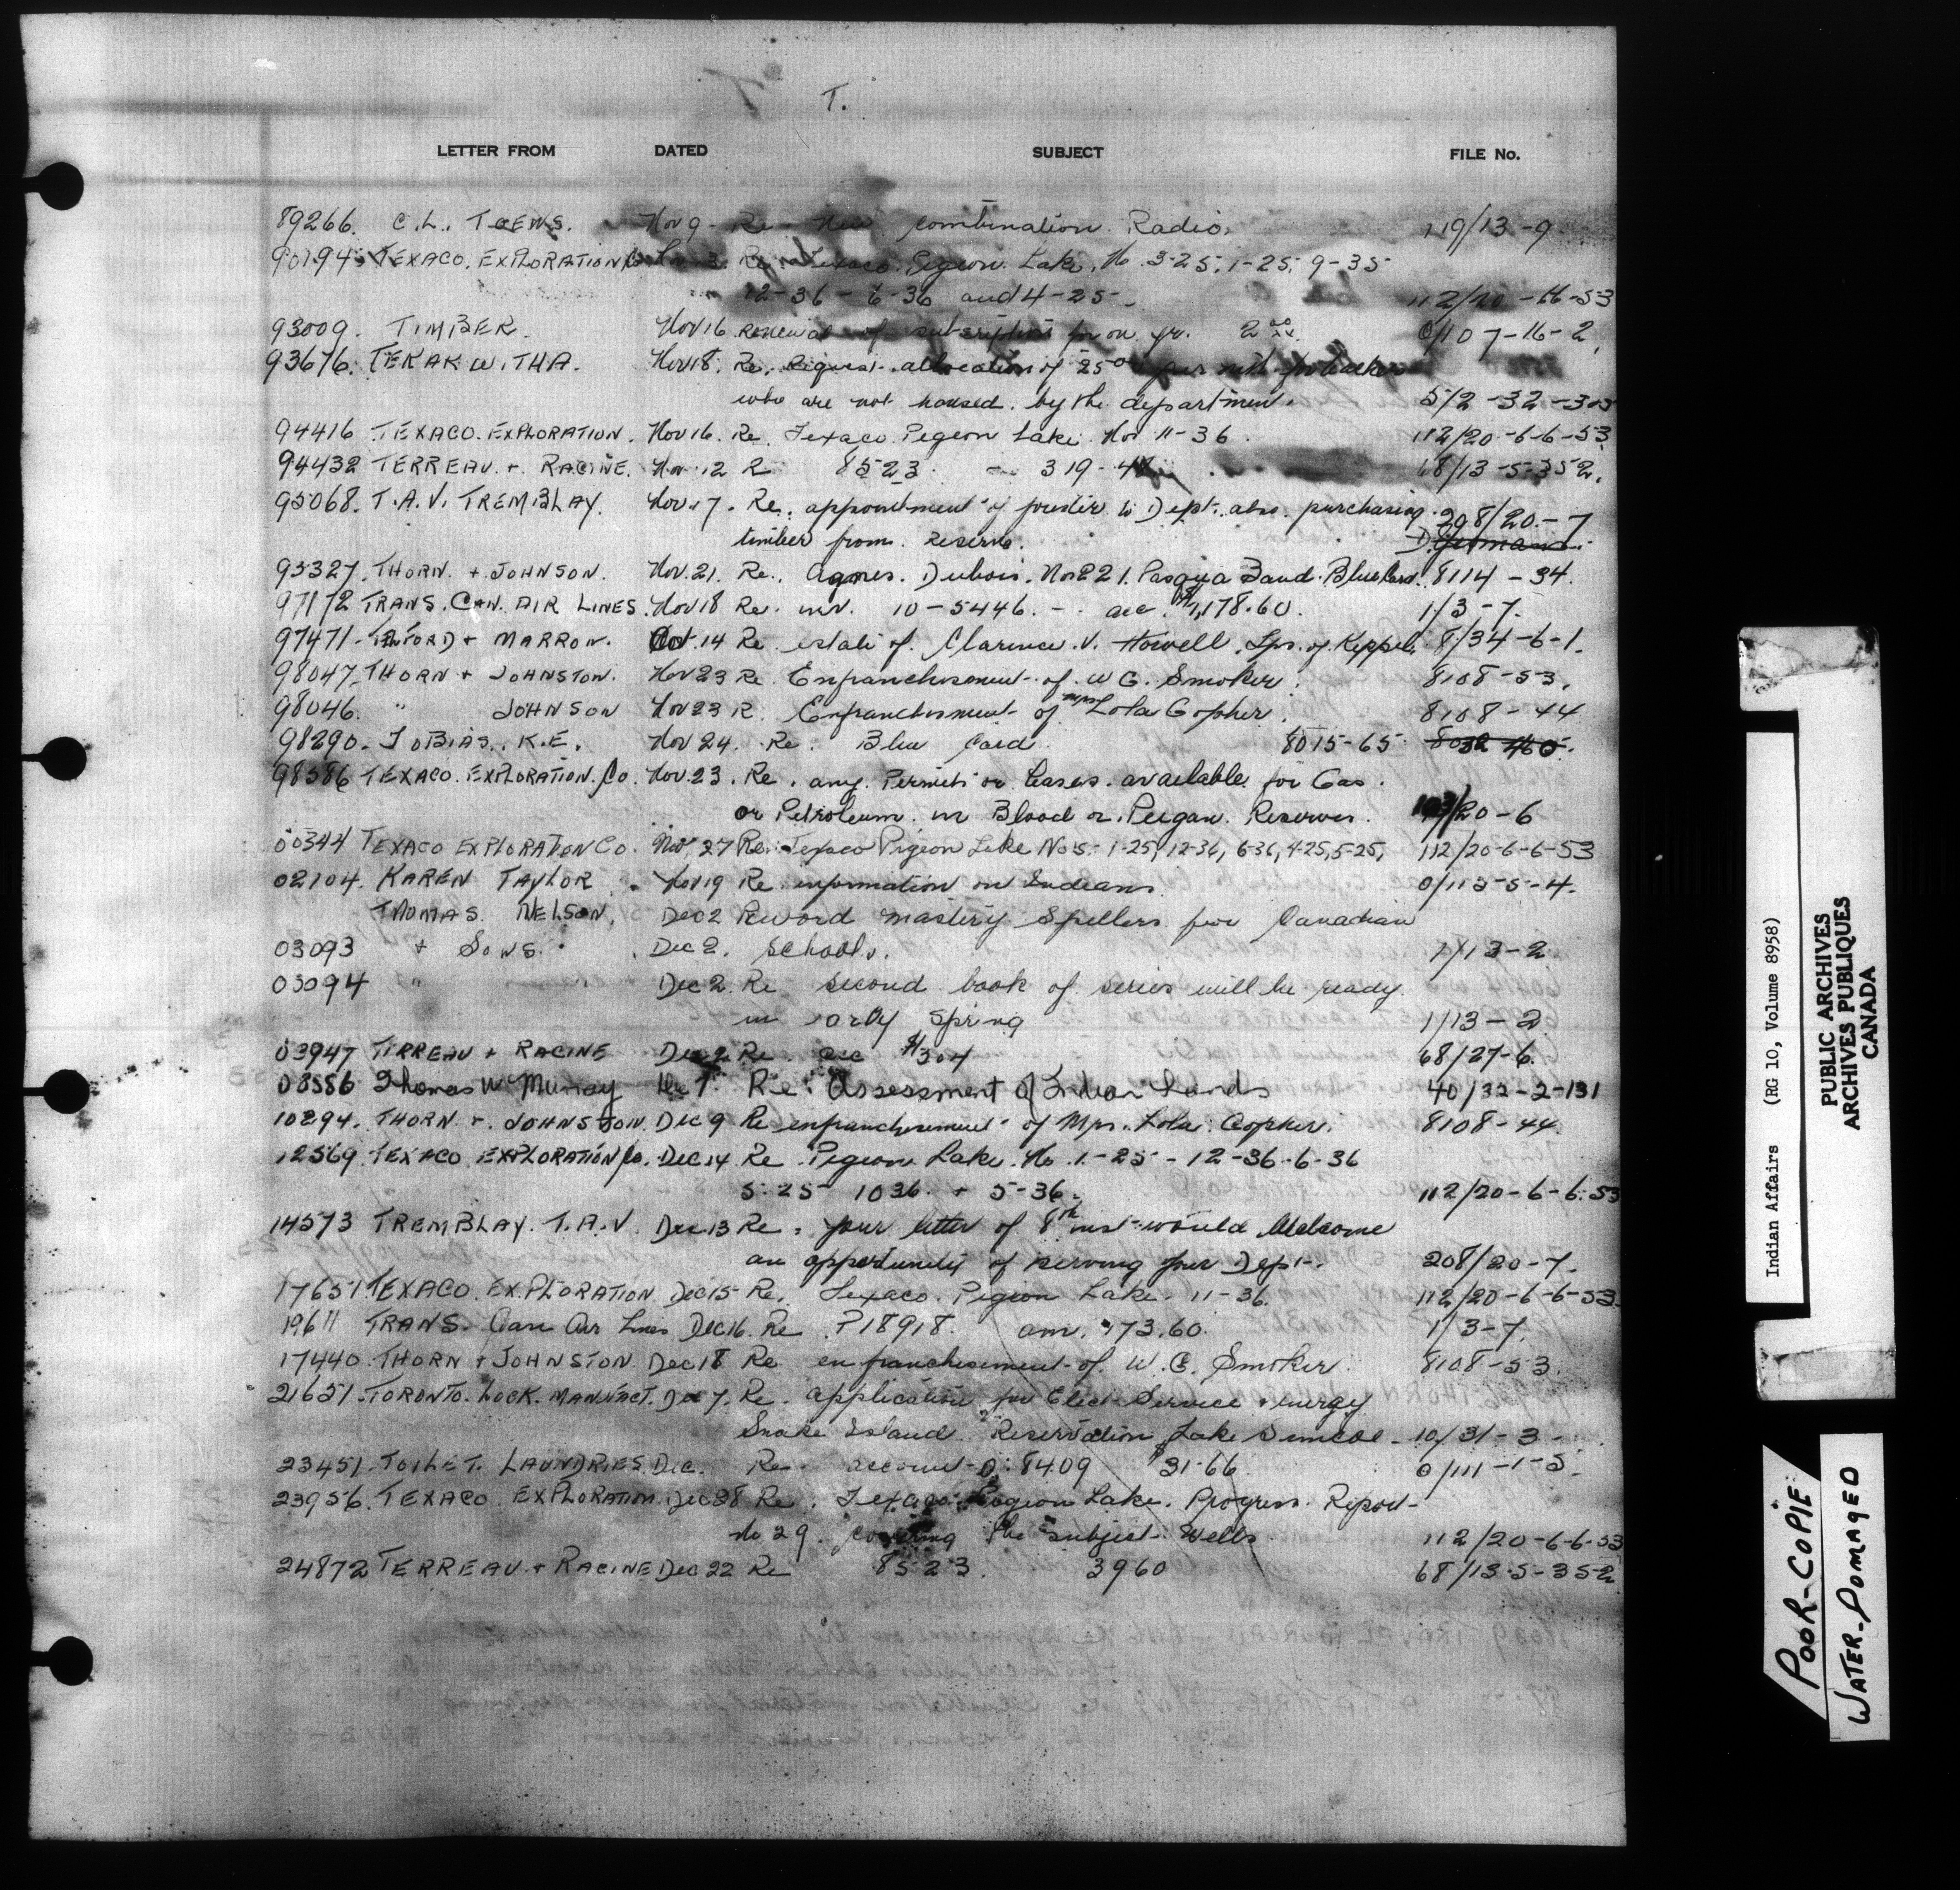 T.
LETTER FROM DATED SUBJECT FILE No.
89266. C.L. TOEWS. Nov 9 - Re - New combination Radio. 119/13-9
90194. TEXACO. EXPLORATION Re Texaco Pigeon Lake, No 3-25, 1-25, 9-35
12-36 - 6-36 and 4-25-. 112/20-
93009. TIMBER. Nov 16 renewal of subscription for on yr. 2 07-16-2.
93676. TEKAKWITHA. Nov 18. Re. Request allocation of 25 per
who are not housed. by the department. 5/2-32-
94416 TEXACO. EXPLORATION. Nov 16. Re. Texaco Pigeon Lake. No 11-36. 112/20-6-6-53
94432 TERREAU. + RACINE. Nov 12 R 8523. 319-4 68/13-5-352.
95068. T.A.V. TREMBLAY. Nov 17. Re. appointment of to Dept. also. purchasing 208/20-7
timber from. reserve.
95327. THORN. + JOHNSON. Nov. 21. Re. Agnes. Dubois. No 221. Pasqua Band. Blue Card. 8114-34.
97172 TRANS. CAN. AIR LINES. Nov 18 Re. inv. 10-5446. - acc. $1,178.60. 1/3-7.
97471 + MARRON. Oct. 14 Re estate of. Clarence. V. Howell. Lps. of. Keppel. 8/34-6-1.
98047 THORN + JOHNSTON. Nov 23 Re. Enfranchisement. of. W G. Smoker. 8108-53.
98046. " JOHNSON Nov 23 R. Enfranchisment of Mrs Lola Gopher. 8108-44
98290. TOBIAS. K.E. Nov 24. Re. Blue Card. 8015-65
98586 TEXACO. EXPLORATION. Co. Nov. 23. Re. any. Permits or Leases. available for Gas.
or Petroleum. in Blood or. Peigan. Reserves. /20-6
00344 TEXACO EXPLORATION Co. Nov. 27 Re. Texaco Pigeon Lake No's - 1-25, 12-36, 6-36, 4-25, 5-25, 112/20-6-6-53
02104. KAREN TAYLOR. Nov 19 Re information on Indians. 0/113-5-4.
THOMAS. NELSON. Dec 2 Reword mastery Spellers for Canadian
03093 + SONS. Dec 2. schools. 1/13-2
03094 " " Dec 2. Re second book of series will be ready
in early Spring 1/13-2
03947 TERREAU + RACINE Dec 2 Re. acc $304 68/27-6.
08556 Thomas W Murray Dec 7. Re: Assessment of Indian Lands 40/32-2-131
10294. THORN. + JOHNSTON. Dec 9 Re enfranchisement of Mrs. Lola. Gopher. 8108-44.
12569. TEXACO EXPLORATION Co. Dec 14 Re. Pigeon Lake. No 1-25 - 12-36-6-36
5-25 1036. + 5-36. 112/20-6-6-53
14573 TREMBLAY. T.A.V. Dec 13 Re. your letter of 8th inst would Welcome
an opportunity of serving your Dept. 208/20-7.
17651 TEXACO EXPLORATION Dec 15 Re. Texaco. Pigeon Lake. 11-36. 112/20-6-6-53.
19611 TRANS. Can Air Lines Dec 16. Re. P18918. am. $73.60. 1/3-7.
17440 THORN + JOHNSTON. Dec 18 Re enfranchisement of. W.G. Smoker. 8108-53.
21651 TORONTO. LOCK. MANUFACT. Dec 7. Re. application for Elec. Service + energy
Snake Island. Reservation Lake Simcoe - 10/31-3-
23451. TOILET. LAUNDRIES. Dec. Re account 0.8409 $31.66. 0/111-1-5.
23956. TEXACO EXPLORATION Dec 28 Re. Texaco Pigeon Lake. Progress. Report
No 29. covering the subject Wells. 112/20-6-6-53
24872 TERREAU + RACINE Dec 22 Re 8523. 3960 68/13-5-352
Indian Affairs (RG 10, Volume 8958)
PUBLIC ARCHIVES
ARCHIVES PUBLIQUES
CANADA
POOR-COPIE
WATER-DOMAGED